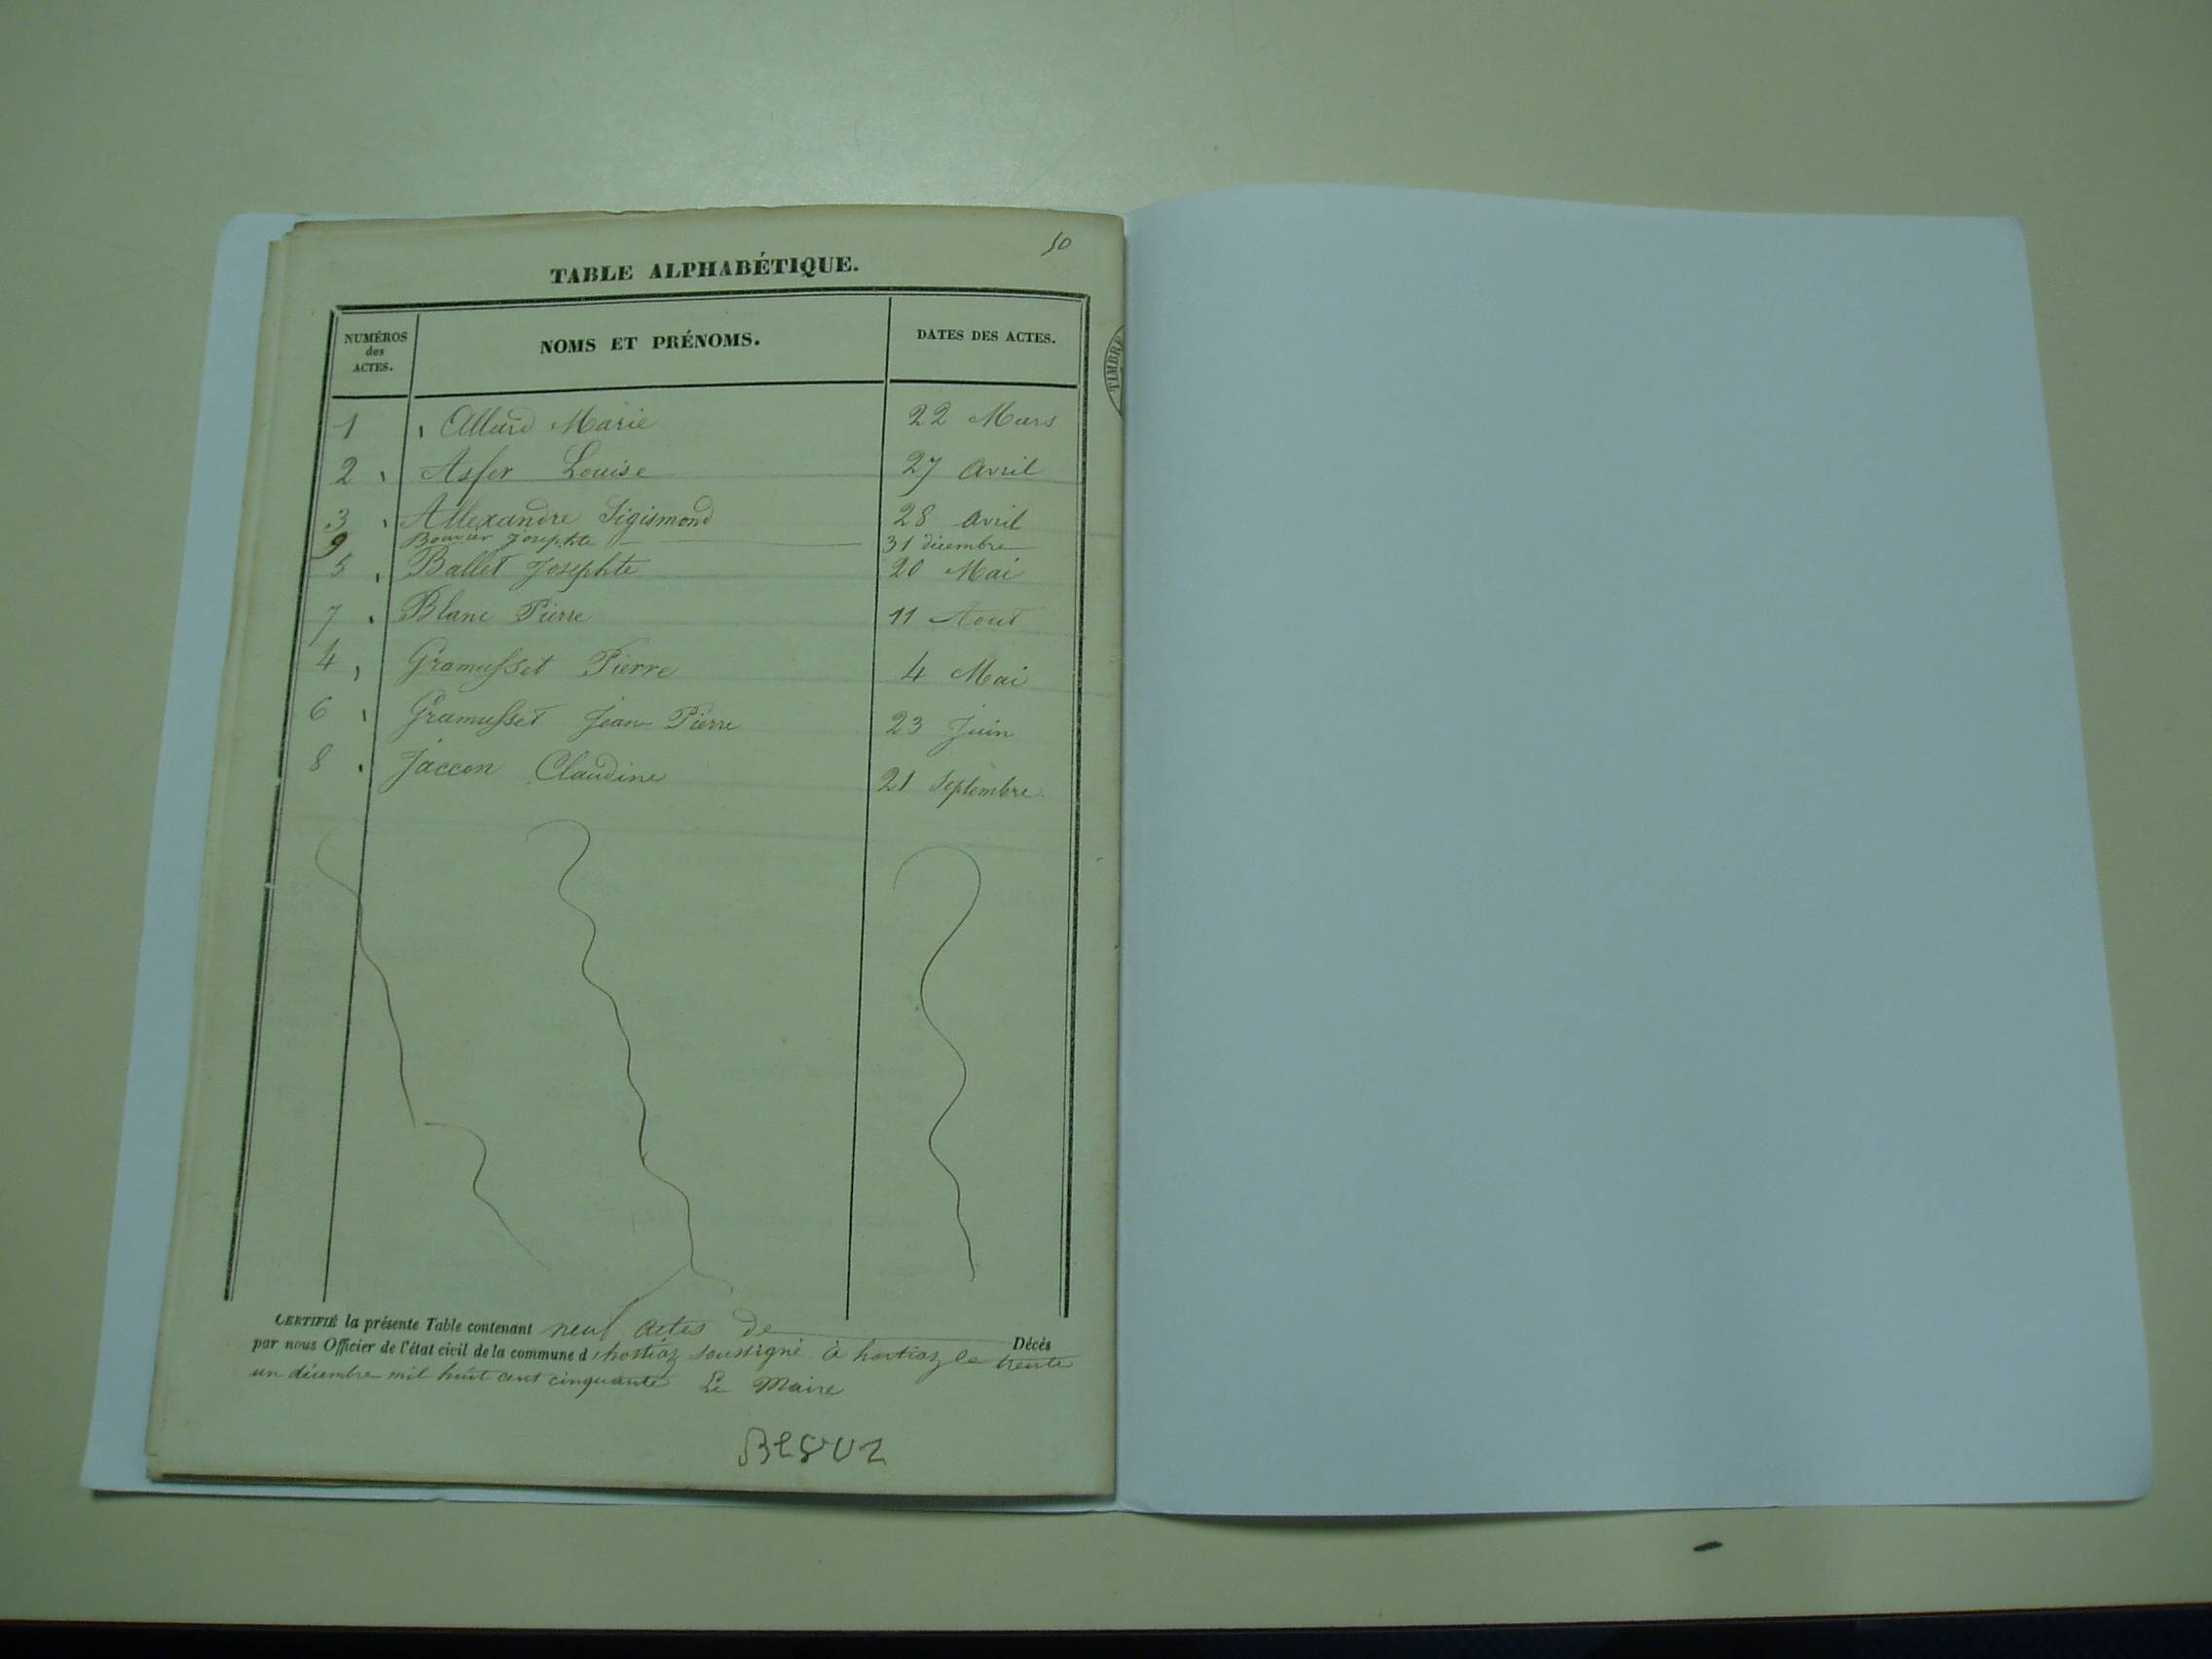 50
TABLE ALPHABÉTIQUE.
NUMÉROS des ACTES. NOMS ET PRÉNOMS. DATES DES ACTES.
TIMBRE
1 Allard Marie 22 Mars
2 Asfer Louise 27 Avril
3 Allexandre Sigismond 28 Avril
9 Bouvier Josephte 31 décembre
5 Ballet Josephte 20 Mai
7 Blanc Pierre 11 Aout
4 Gramusset Pierre 4 Mai
6 Gramusset Jean Pierre 23 Juin
8 Jaccon Claudine 21 Septembre
CERTIFIÉ la présente Table contenant neuf actes de Décès
par nous Officier de l'état civil de la commune d'hostiaz soussigné à hostiaz le trente
un décembre mil huit cent cinquante Le Maire